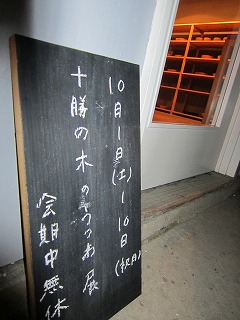 10月1日(土)-10日(祝月)
十勝の木のうつわ展
会期中無休